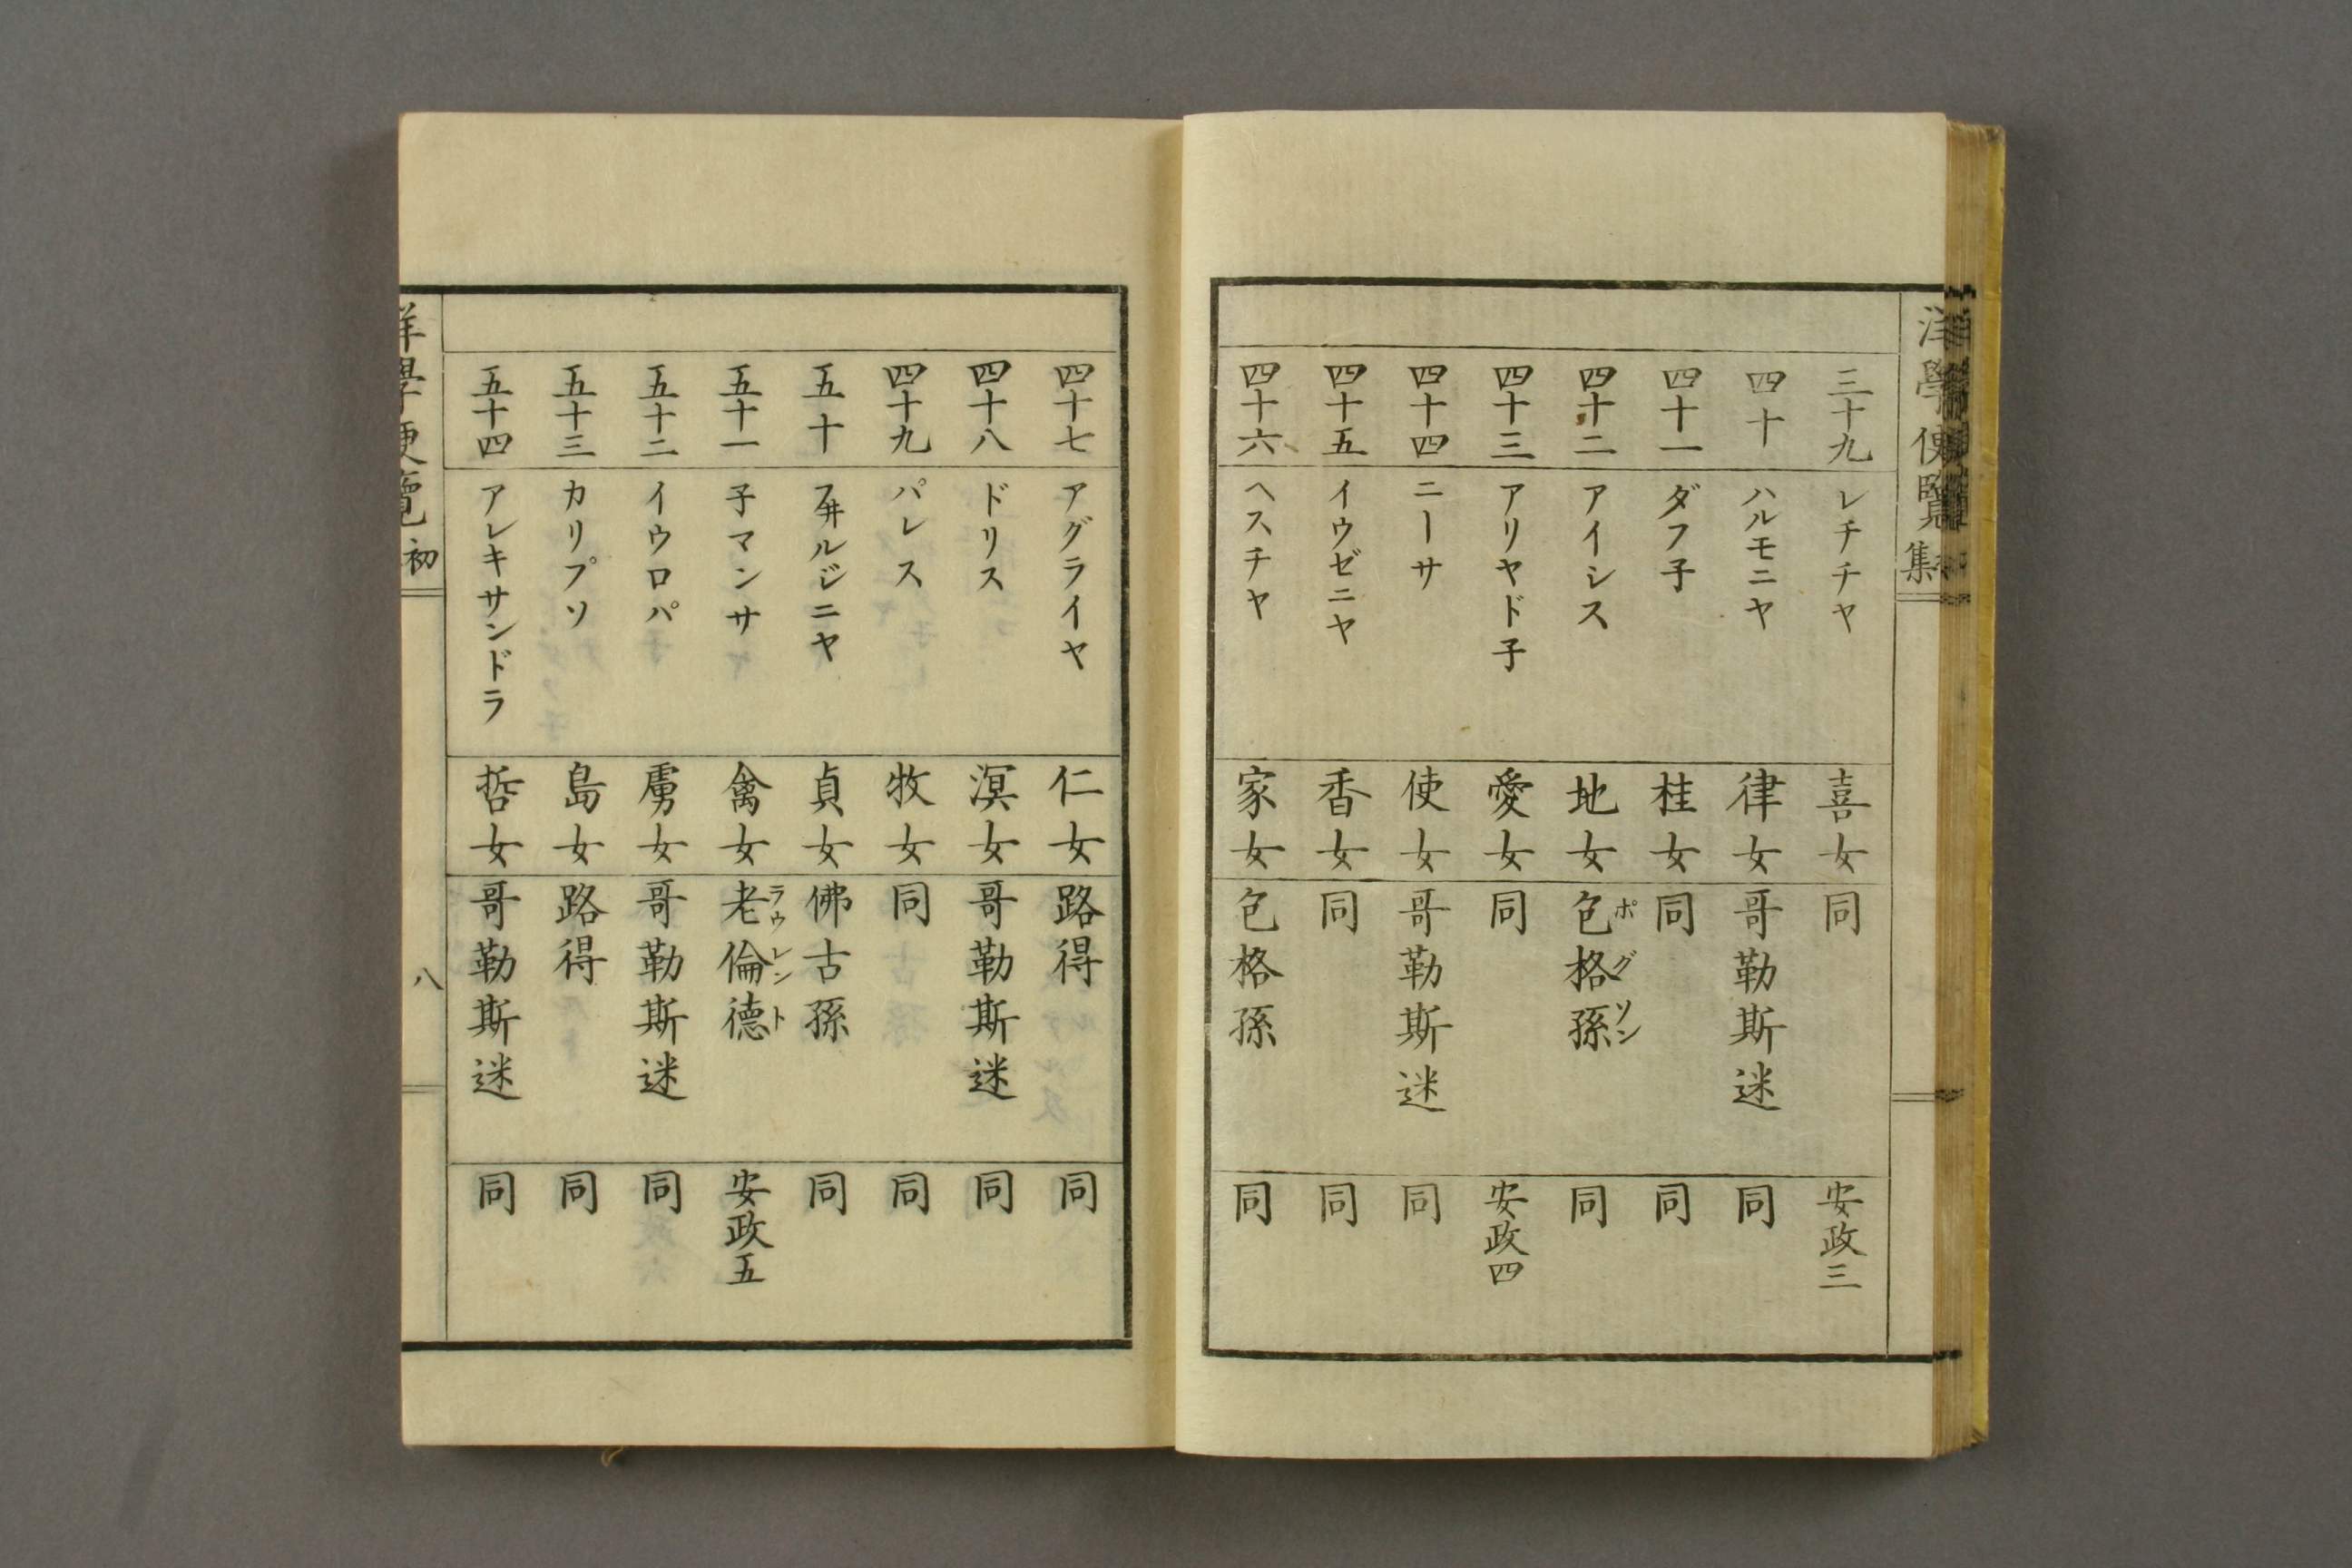 洋學便覽
集
三十九 レチチヤ 喜女 同 安政三
四十 ハルモニヤ 律女 哥勒斯迷 同
四十一 ダフ子 桂女 同 同
四十二 アイシス 地女 包格孫 ポグソン 同
四十三 アリヤド子 愛女 同 安政四
四十四 ニーサ 使女 哥勒斯迷 同
四十五 イウゼニヤ 香女 同 同
四十六 ヘスチヤ 家女 包格孫 同
四十七 アグライヤ 仁女 路得 同
四十八 ドリス 溟女 哥勒斯迷 同
四十九 パレス 牧女 同 同
五十 フ井ルジニヤ 貞女 佛古孫 同
五十一 子マンサ 禽女 老倫德 ラウレント 安政五
五十二 イウロパ 虜女 哥勒斯迷 同
五十三 カリプソ 島女 路得 同
五十四 アレキサンドラ 哲女 哥勒斯迷 同
洋學便覽 初
八